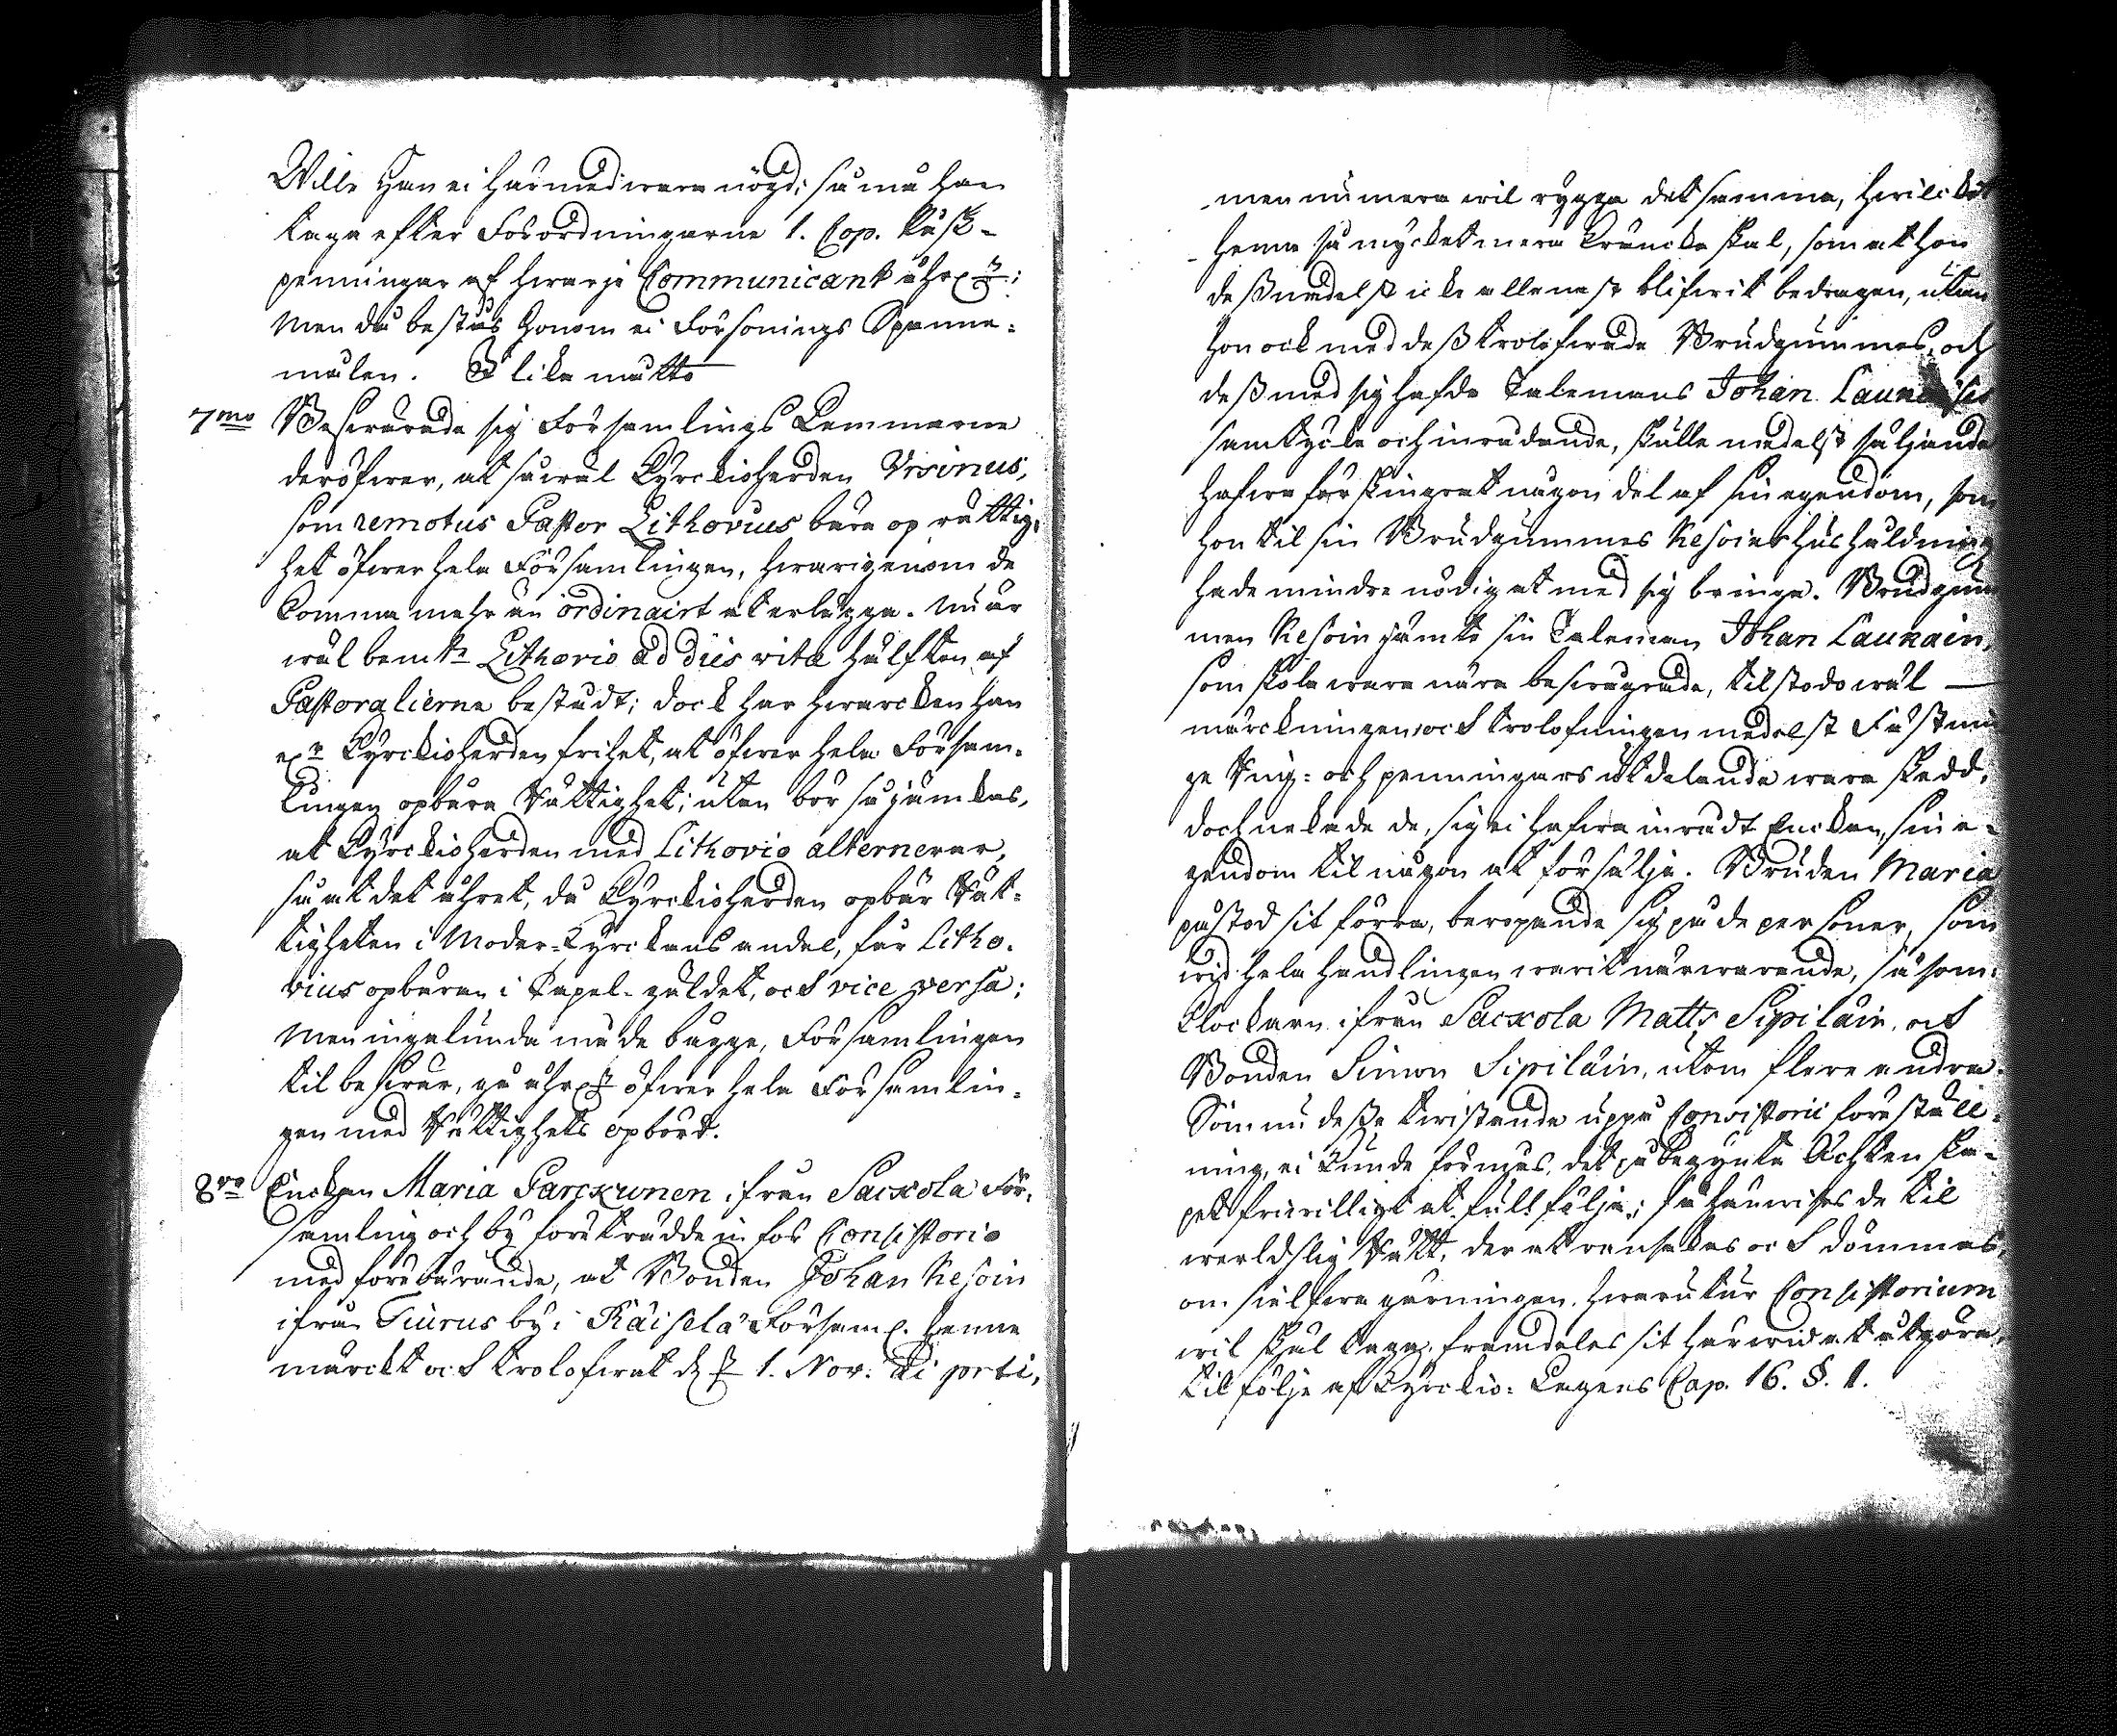 Wille Han ei härmed wara nögd; så må han
taga efter Förordningarne 1. Cop. Påsk-
penningar af hwarje Communicant åhrl:n;
Men då bestås honom ei Försonings Spanne-
målen. I lika måtto
7mo Beswärade sig Församlings Lemmarne
deröfwer, at såwäl Kyrckioherden Ursinus,
som remotus Pastor Lithovius bära op rättig-
het öfwer hela Församlingen, hwarigenom de
komma mehr än ordinairt at erlägga. Nu är
wäl bem:te Lithovio ad dies vitæ hälften af
Pastoralierne bestådt; dock har hwarcken han
el:r Kyrckioherden frihet, at öfwer hela Försam-
lingen opbära Rättighet; utan bör så jämkas,
at Kyrckioherden med Lithovio alternerar,
så at det åhret, då Kyrckioherden opbär Rät-
tigheten i Moder-Kyrckans andel, får Litho-
vius opbäran i Capel-gäldet, och vice versa;
Men ingalunda må de bägge, Församlingen
til beswär, gå åhrl:n öfwer hela Församlin-
gen med Rättighets opbörd.
8vo Enckjan Maria Parckunen ifrån Sackola För-
samling och by förekrädde inför Consistorio
med förebärande, at Bonden Johan Resoin
ifrån Tiurus by i Räisälä Församl. henne
märckt och trolofwat d. 1. Nov. sti prti,
men numera wil rygga det samma, hwilcket
henne så mycket mera kräncka skal, som at hon
desmedelst icke allenast blifwit bedragen, utan
hon ock med dess trolofwade Brudgummes, och
dess med sig hafde Talemans Johan Launains
samtycke och inrådande, skulle medelst säljande
hafwa förskingrat någon del af sin egendom, som
hon til sin Brudgummes Resoins hushåldning
hade mindre nödig at med sig bringa. Brudgum
men Resoin jämte sin Taleman Johan Launain,
som skola wara nära beswågrade, tilstodo wäl
märckningen och trolofningen medelst Fästnin
ge Ring- och penningars utdelande wara skedd,
doch nekade de, sig ei hafwa inrådt Enckan, sin e-
gendom til någon at försälja. Bruden Maria
påstod sit förra, beropande sig på de personer, som
wid hela handlingen warit närwarande, såsom:
Klockarn ifrån Sackola Matts Sipiläin, och
Bonden Simon Sipiläin, utom flere andra.
Som nu desse twistande uppå Consistorii föreställ-
ning, ei kunde förmås, det påbegynta Äckten ska-
pet friwilligt at fullfölja; så hänwises de til
werldslig Rätt, der at ransakas och dömmas,
om sielfwa gärningen. hwarutur Consistorium
wil skäl taga, framdeles sit härwid at utgöra,
til följe af Kyrckio-Lagens Cap. 16. §. 1.